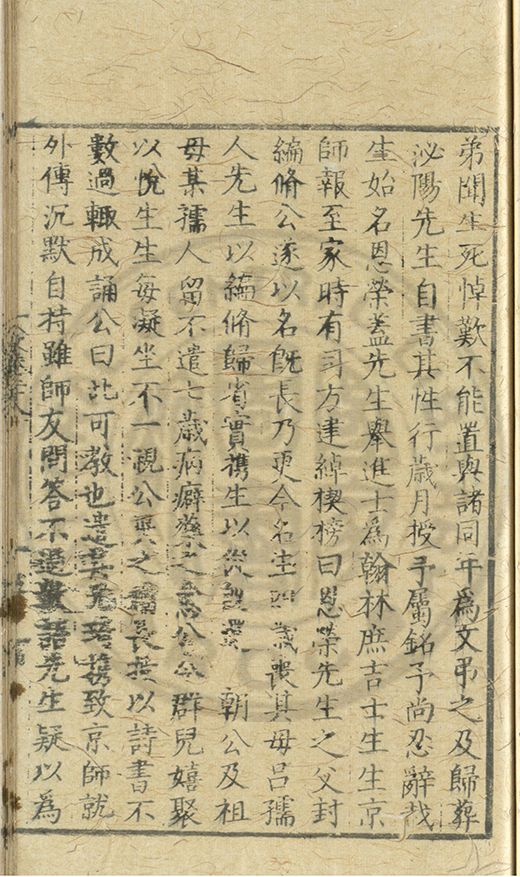 弟聞生死悼歎不能置與諸同年為文弔之及歸葬
泌陽先生自書其性行歲月授予屬銘予尚忍辭哉
生始名恩榮蓋先生舉進士為翰林庶吉士生生京
師報至家時有司方建綽楔榜曰恩榮先生之父封
編脩公遂以名既長乃更今名生四歲喪其母呂孺
人先生以編脩歸省實携生以從 還 朝公及祖
母某孺人留不遣七歲病癖 公 群兒嬉聚
以悅生生每凝坐不一視公異之稍長授以詩書不
數過輒成誦公曰此可教也遣 携致京師就
外傅沉默自持雖師友問答不過數語先生疑以為